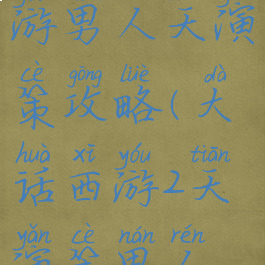 游男人天演
cè gōng lüè dà
策攻略(大
huà xī yóu tiān
话西游2天
yǎn cè nán rén
演策男人